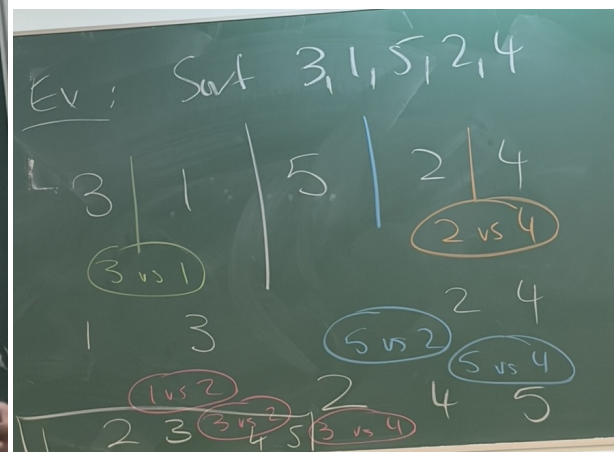 Ex: Sort 3,1,5,2,4
3 1 5 2 4
3 vs 1 2 vs 4
2 4
1 3 5 vs 2 5 vs 4
1 vs 2 2 4 5
1 2 3 3 vs 2 4 5 3 vs 4